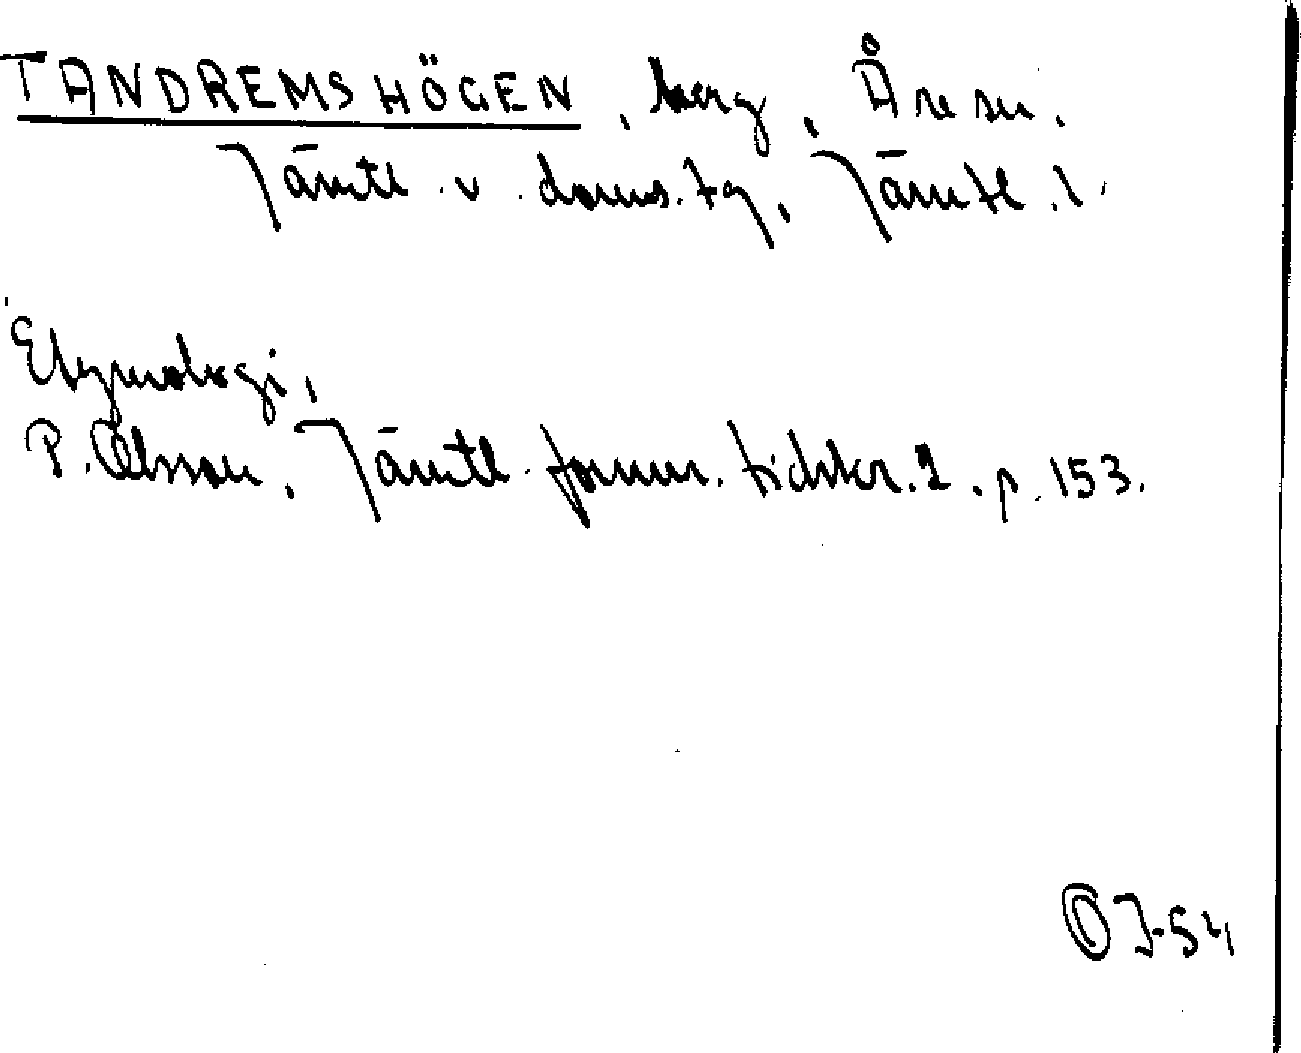 TANDREMSHÖGEN, berg, Åre sn.
Jämtl. v. doms. tg, Jämtl. l.
Etymologi,
P. Olsson, Jämtl. fornm. tidskr. 2. p. 153.
J-54